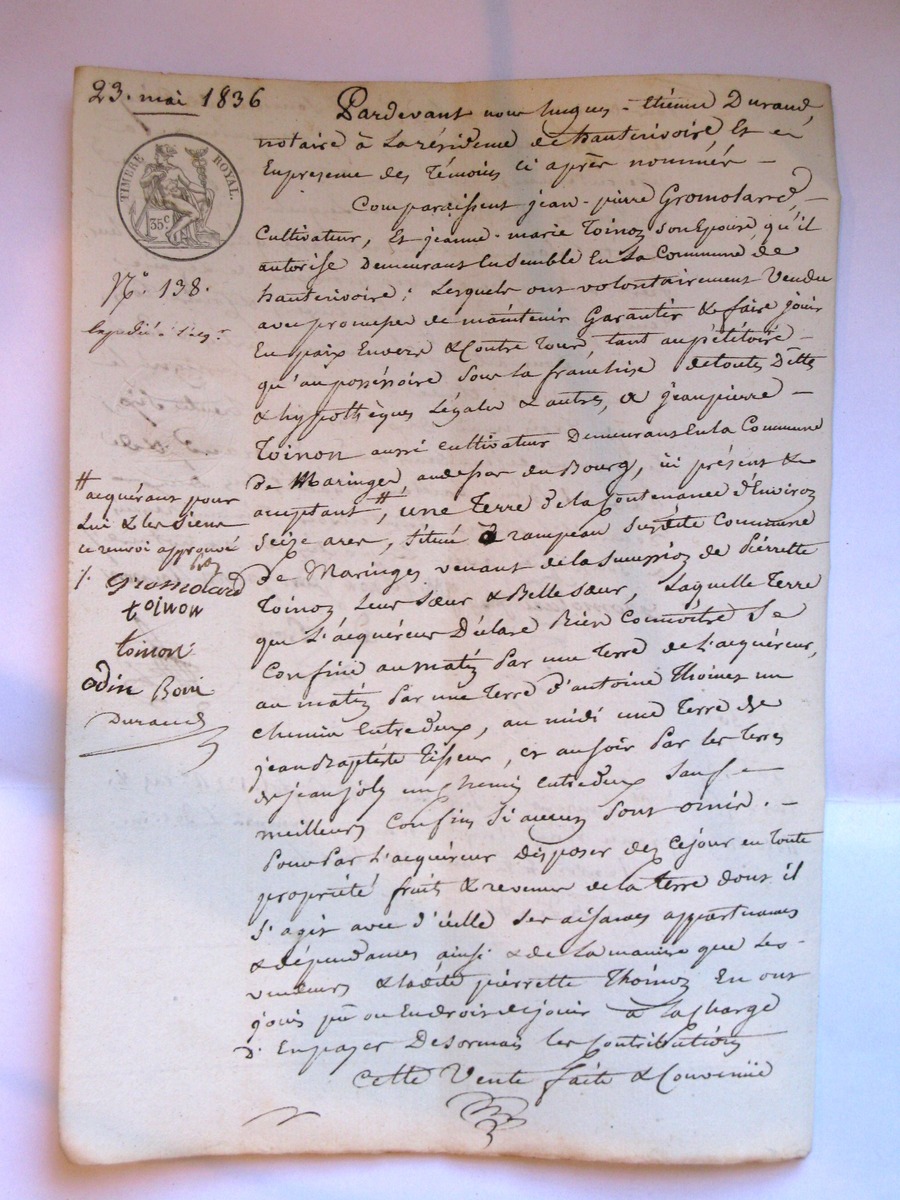 23. mai 1836
TIMBRE ROYAL.
35c.
N° 138.
Expédié à l'acqr
Pardevant nous hugues-Etienne Durand,
notaire à La résidence de hauterivoire Et en
Enpresence des Témoins ci après nommés —
Comparaissent jean-pierre Gromolard, —
Cultivateur, Et jeanne-marie Toinon son Epouse, qu'il
autorise Demeurans Ensemble En La Commune de
hauterivoire; Lesquels ont volontairement Vendu
avec promesse de maintenir Garantir & faire jouir
En paix Envers & Contre Tous, tant au pétitoire —
qu'au possessoire Sous La franchise detoutes Dettes
& hypothèques Légales & autres, a jeanpierre —
Toinon aussi cultivateur Demeurans En La Commune
De Maringes audessar du Bourg, ici présent &
acceptant #, une Terre de la Contenance d'Environ
Seize ares, Situé à rampeau Susdite Commune
De Maringes venant de la Succession de Pierrette
Toinon Leur Sœur & Belle Sœur, Laquelle Terre
que L'acquéreur Déclare Bien Connoître Se
Confine au matin Par une Terre de L'acquéreur,
au matin Par une Terre d'antoine Thoinon un
chemin Entredeux, au midi une Terre de
jean Baptiste Tisseur, et au soir Par les Terres
de jean joly un chemin Entredeux Sauf —
meilleurs Confins Si aucuns Sont omis. —
Pour Par L'acquéreur Disposer dès cejour en toute
propriété fruits & revenus de la Terre dont il
S'agit avec d'icelle Ses aisances appartenances
& dépendances ainsi & de La maniere que Les —
vendeurs & ladite pierrette Thoinon En ont
jouis pû ou En droit de jouir à La Charge
D'En payer Desormais les Contributions
Cette Vente faite & Convenüe
#
acquérant pour
Lui & les Siens
ce renvoi approuvé
Gromolard
toinon
toinon
odin Boiri
Durand